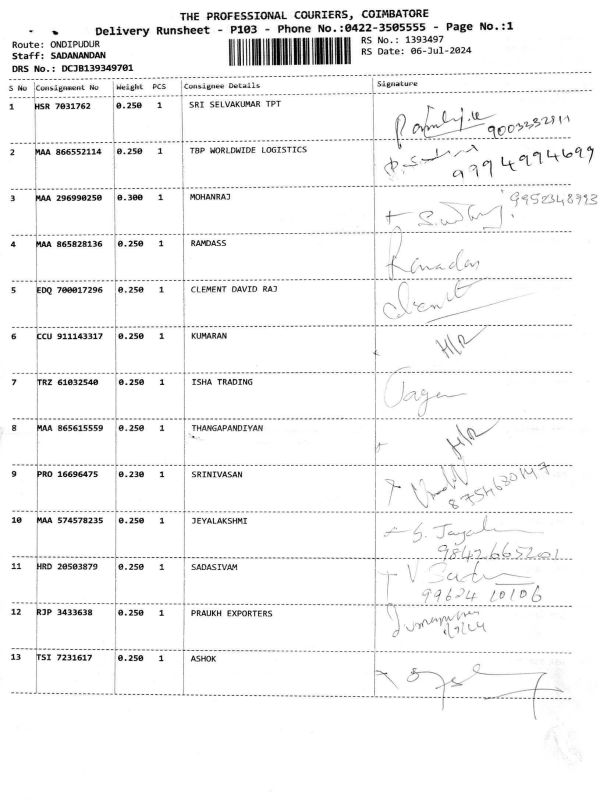 THE PROFESSIONAL COURIERS, COIMBATORE
Delivery Runsheet - P103 - Phone No.:0422-3505555 - Page No.:1
Route: ONDIPUDUR
RS No.: 1393497
Staff: SADANANDAN
RS Date: 06-Jul-2024
DRS No.: DCJB139349701
S No Consignment No Weight PCS Consignee Details Signature
1 HSR 7031762 0.250 1 SRI SELVAKUMAR TPT
2 MAA 866552114 0.250 1 TBP WORLDWIDE LOGISTICS 9994994699
3 MAA 296990250 0.300 1 MOHANRAJ 9952348993
4 MAA 865828136 0.250 1 RAMDASS Ramadas
5 EDQ 700017296 0.250 1 CLEMENT DAVID RAJ
6 CCU 911143317 0.250 1 KUMARAN H/R
7 TRZ 61032540 0.250 1 ISHA TRADING
8 MAA 865615559 0.250 1 THANGAPANDIYAN H/R
9 PRO 16696475 0.230 1 SRINIVASAN
8754680147
10 MAA 574578235 0.250 1 JEYALAKSHMI
9842665201
11 HRD 20503879 0.250 1 SADASIVAM
99624 10106
12 RJP 3433638 0.250 1 PRAUKH EXPORTERS
13 TSI 7231617 0.250 1 ASHOK